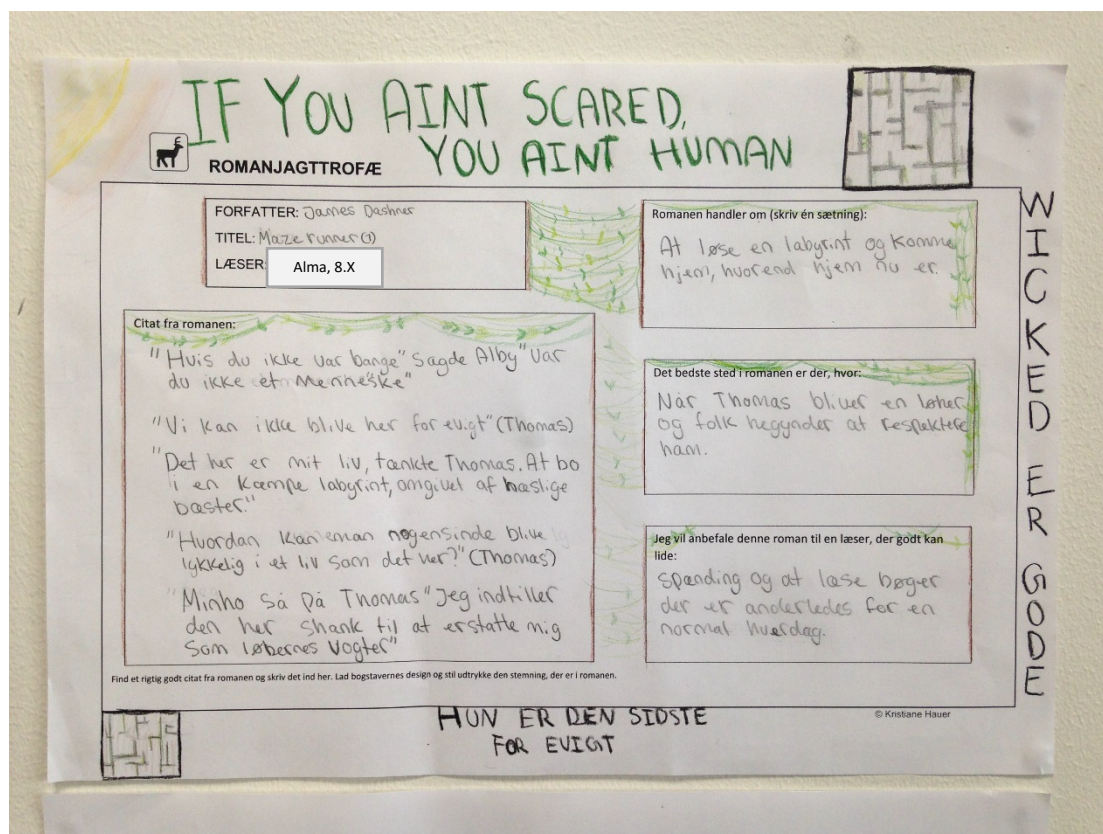 IF YOU AINT SCARED,
YOU AINT HUMAN
ROMANJAGTTROFÆ
FORFATTER: James Dashner
TITEL: Maze runner (1)
LÆSER:
Alma, 8.X
Citat fra romanen:
"Hvis du ikke var bange" sagde Alby "var
du ikke et menneske"
"Vi kan ikke blive her for evigt" (Thomas)
"Det her er mit liv, tænkte Thomas. At bo
i en kæmpe labyrint, omgivet af hæslige
bæster."
"Hvordan kan man nogensinde blive
lykkelig i et liv som det her?" (Thomas)
"Minho så på Thomas "Jeg indtiller
den her shank til at erstatte mig
som løbernes vogter"
Find et rigtig godt citat fra romanen og skriv det ind her. Lad bogstavernes design og stil udtrykke den stemning, der er i romanen.
Romanen handler om (skriv én sætning):
At løse en labyrint og komme
hjem, hvorend hjem nu er.
Det bedste sted i romanen er der, hvor:
Når Thomas bliver en løber
og folk begynder at respektere
ham.
Jeg vil anbefale denne roman til en læser, der godt kan
lide:
spænding og at læse bøger
der er anderledes for en
normal hverdag.
WICKED ER GODE
HUN ER DEN SIDSTE
FOR EVIGT
© Kristiane Hauer